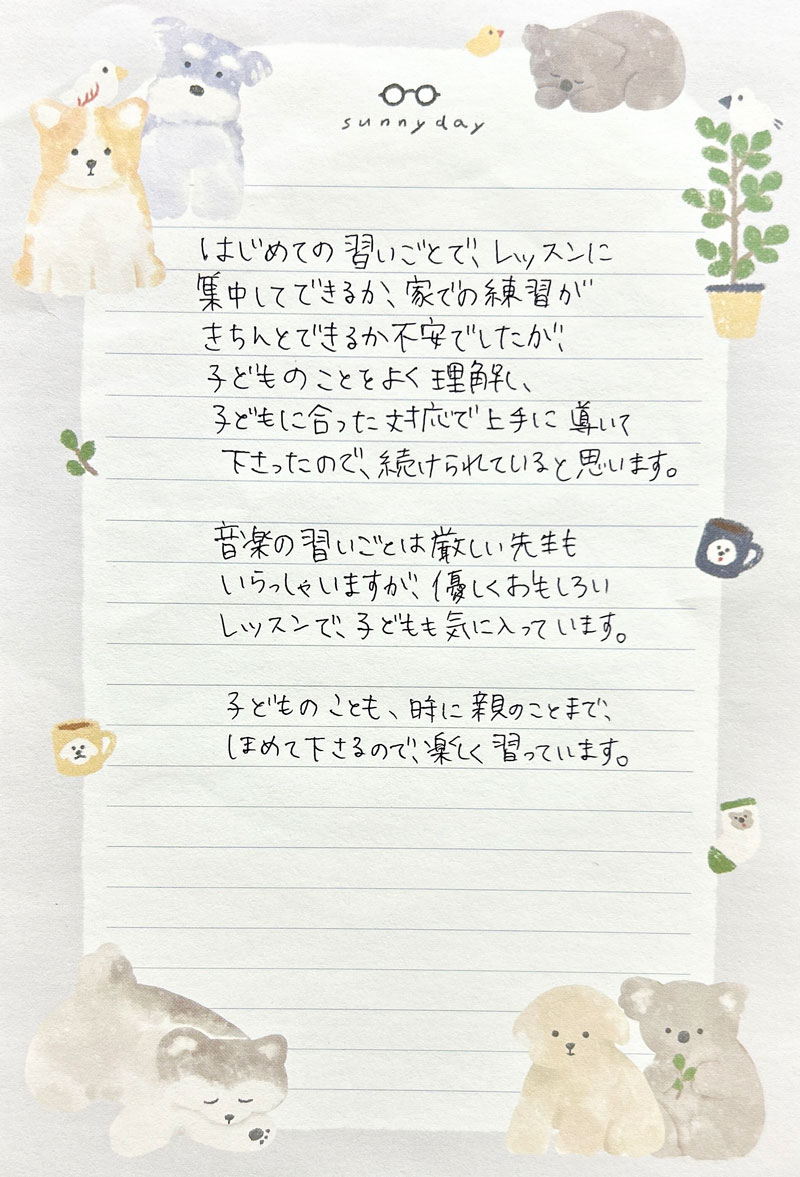 sunnyday
はじめての習いごとで、レッスンに
集中してできるか、家での練習が
きちんとできるか不安でしたが、
子どものことをよく理解し、
子どもに合った対応で上手に導いて
下さったので、続けられていると思います。
音楽の習いごとは厳しい先生も
いらっしゃいますが、優しくおもしろい
レッスンで、子どもも気に入っています。
子どものことも、時に親のことまで、
ほめて下さるので、楽しく習っています。